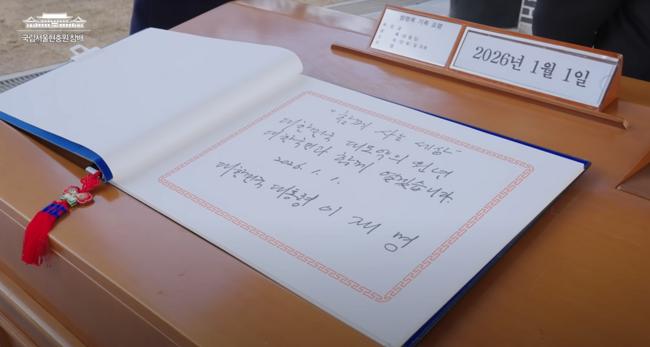 국립서울현충원 참배
방명록 기록 요령
2026년 1월 1일
"함께 사는 세상"
대한민국 대도약의 원년
대한국민과 함께 열겠습니다.
2026. 1. 1.
대한민국 대통령 이재명